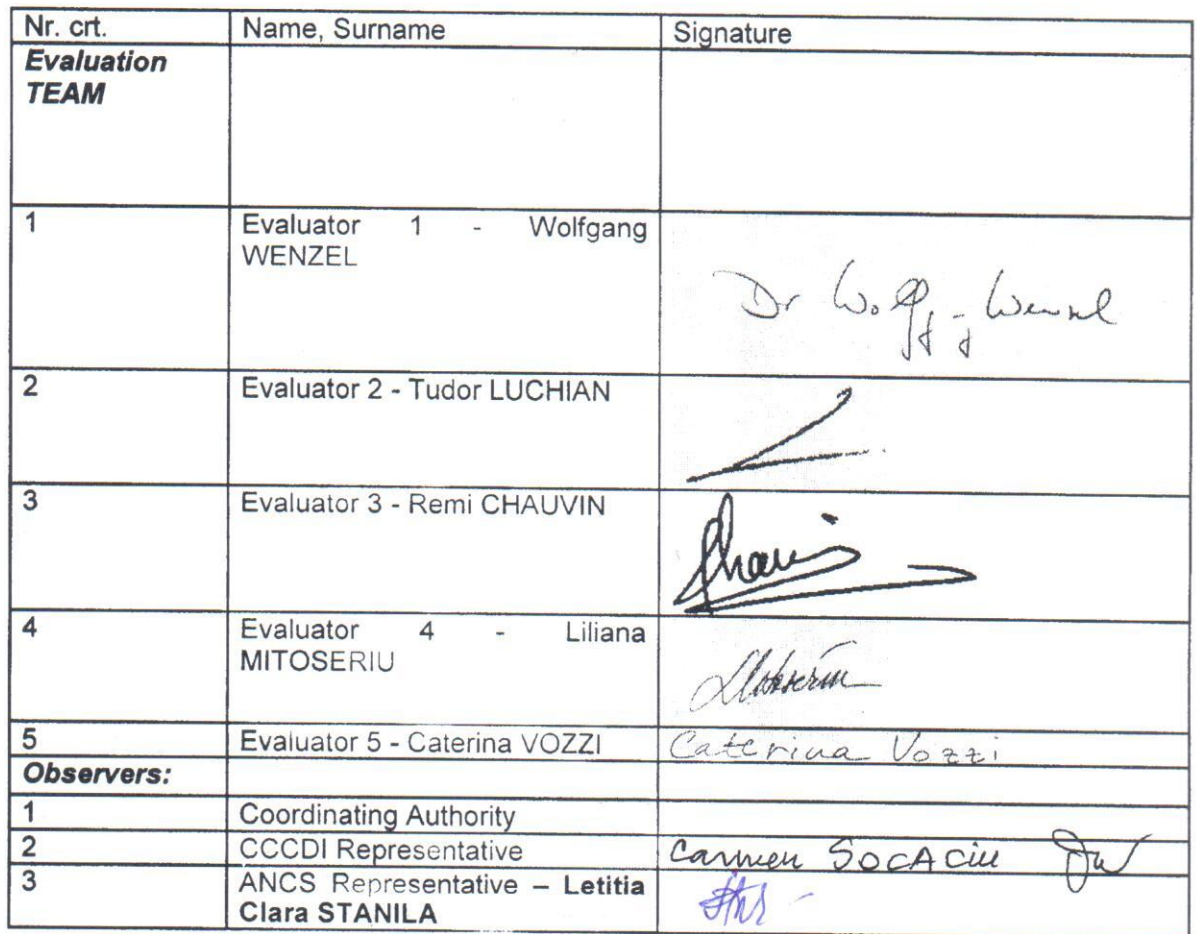 Nr. crt. Name, Surname Signature
Evaluation
TEAM
1 Evaluator 1 - Wolfgang
WENZEL
Dr Wolfg Wenzel
2 Evaluator 2 - Tudor LUCHIAN
3 Evaluator 3 - Remi CHAUVIN
4 Evaluator 4 - Liliana
MITOSERIU
5 Evaluator 5 - Caterina VOZZI Caterina Vozzi
Observers:
1 Coordinating Authority
2 CCCDI Representative Carmen SOCACIU
3 ANCS Representative – Letitia
Clara STANILA